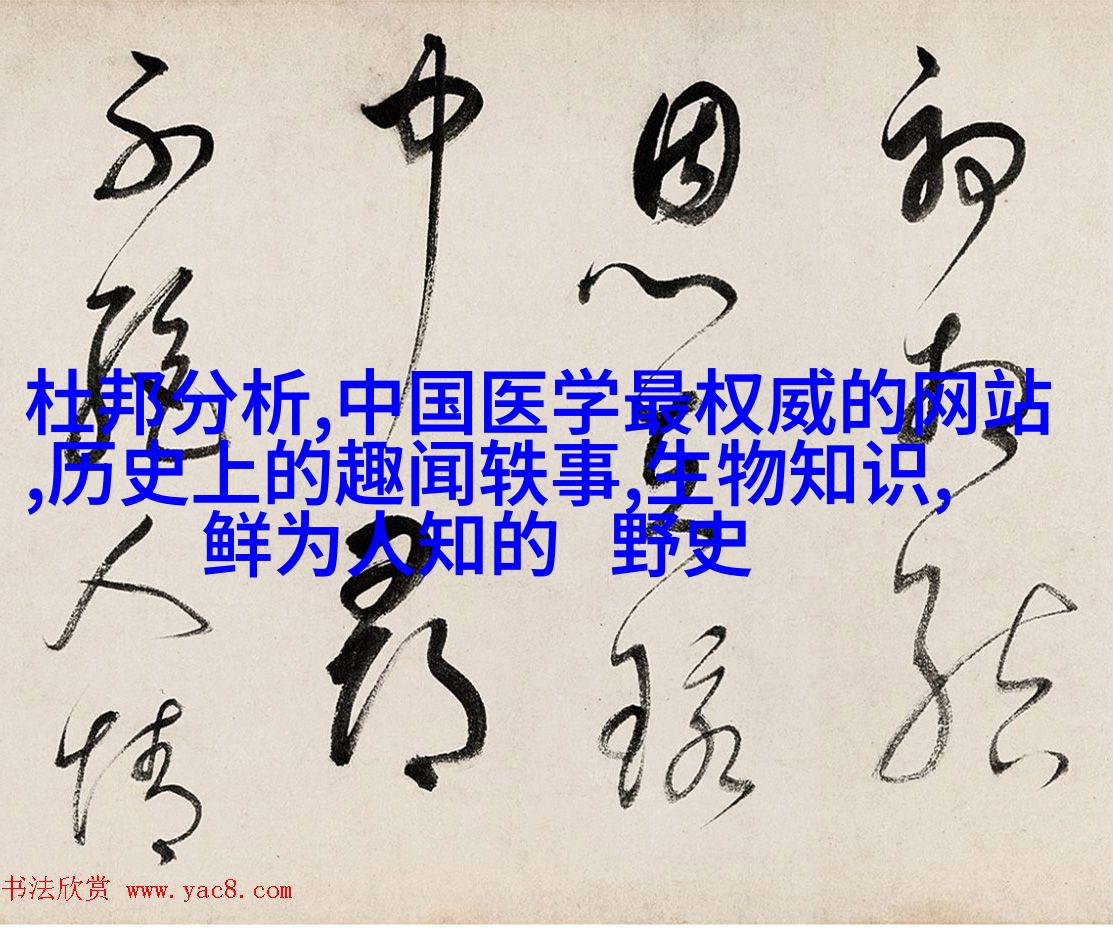 恩
中
不隨人情
杜邦分析,中国医学最权威的网站
,历史上的趣闻轶事,生物知识,
鲜为人知的 野史
书法欣赏 www.yac8.com